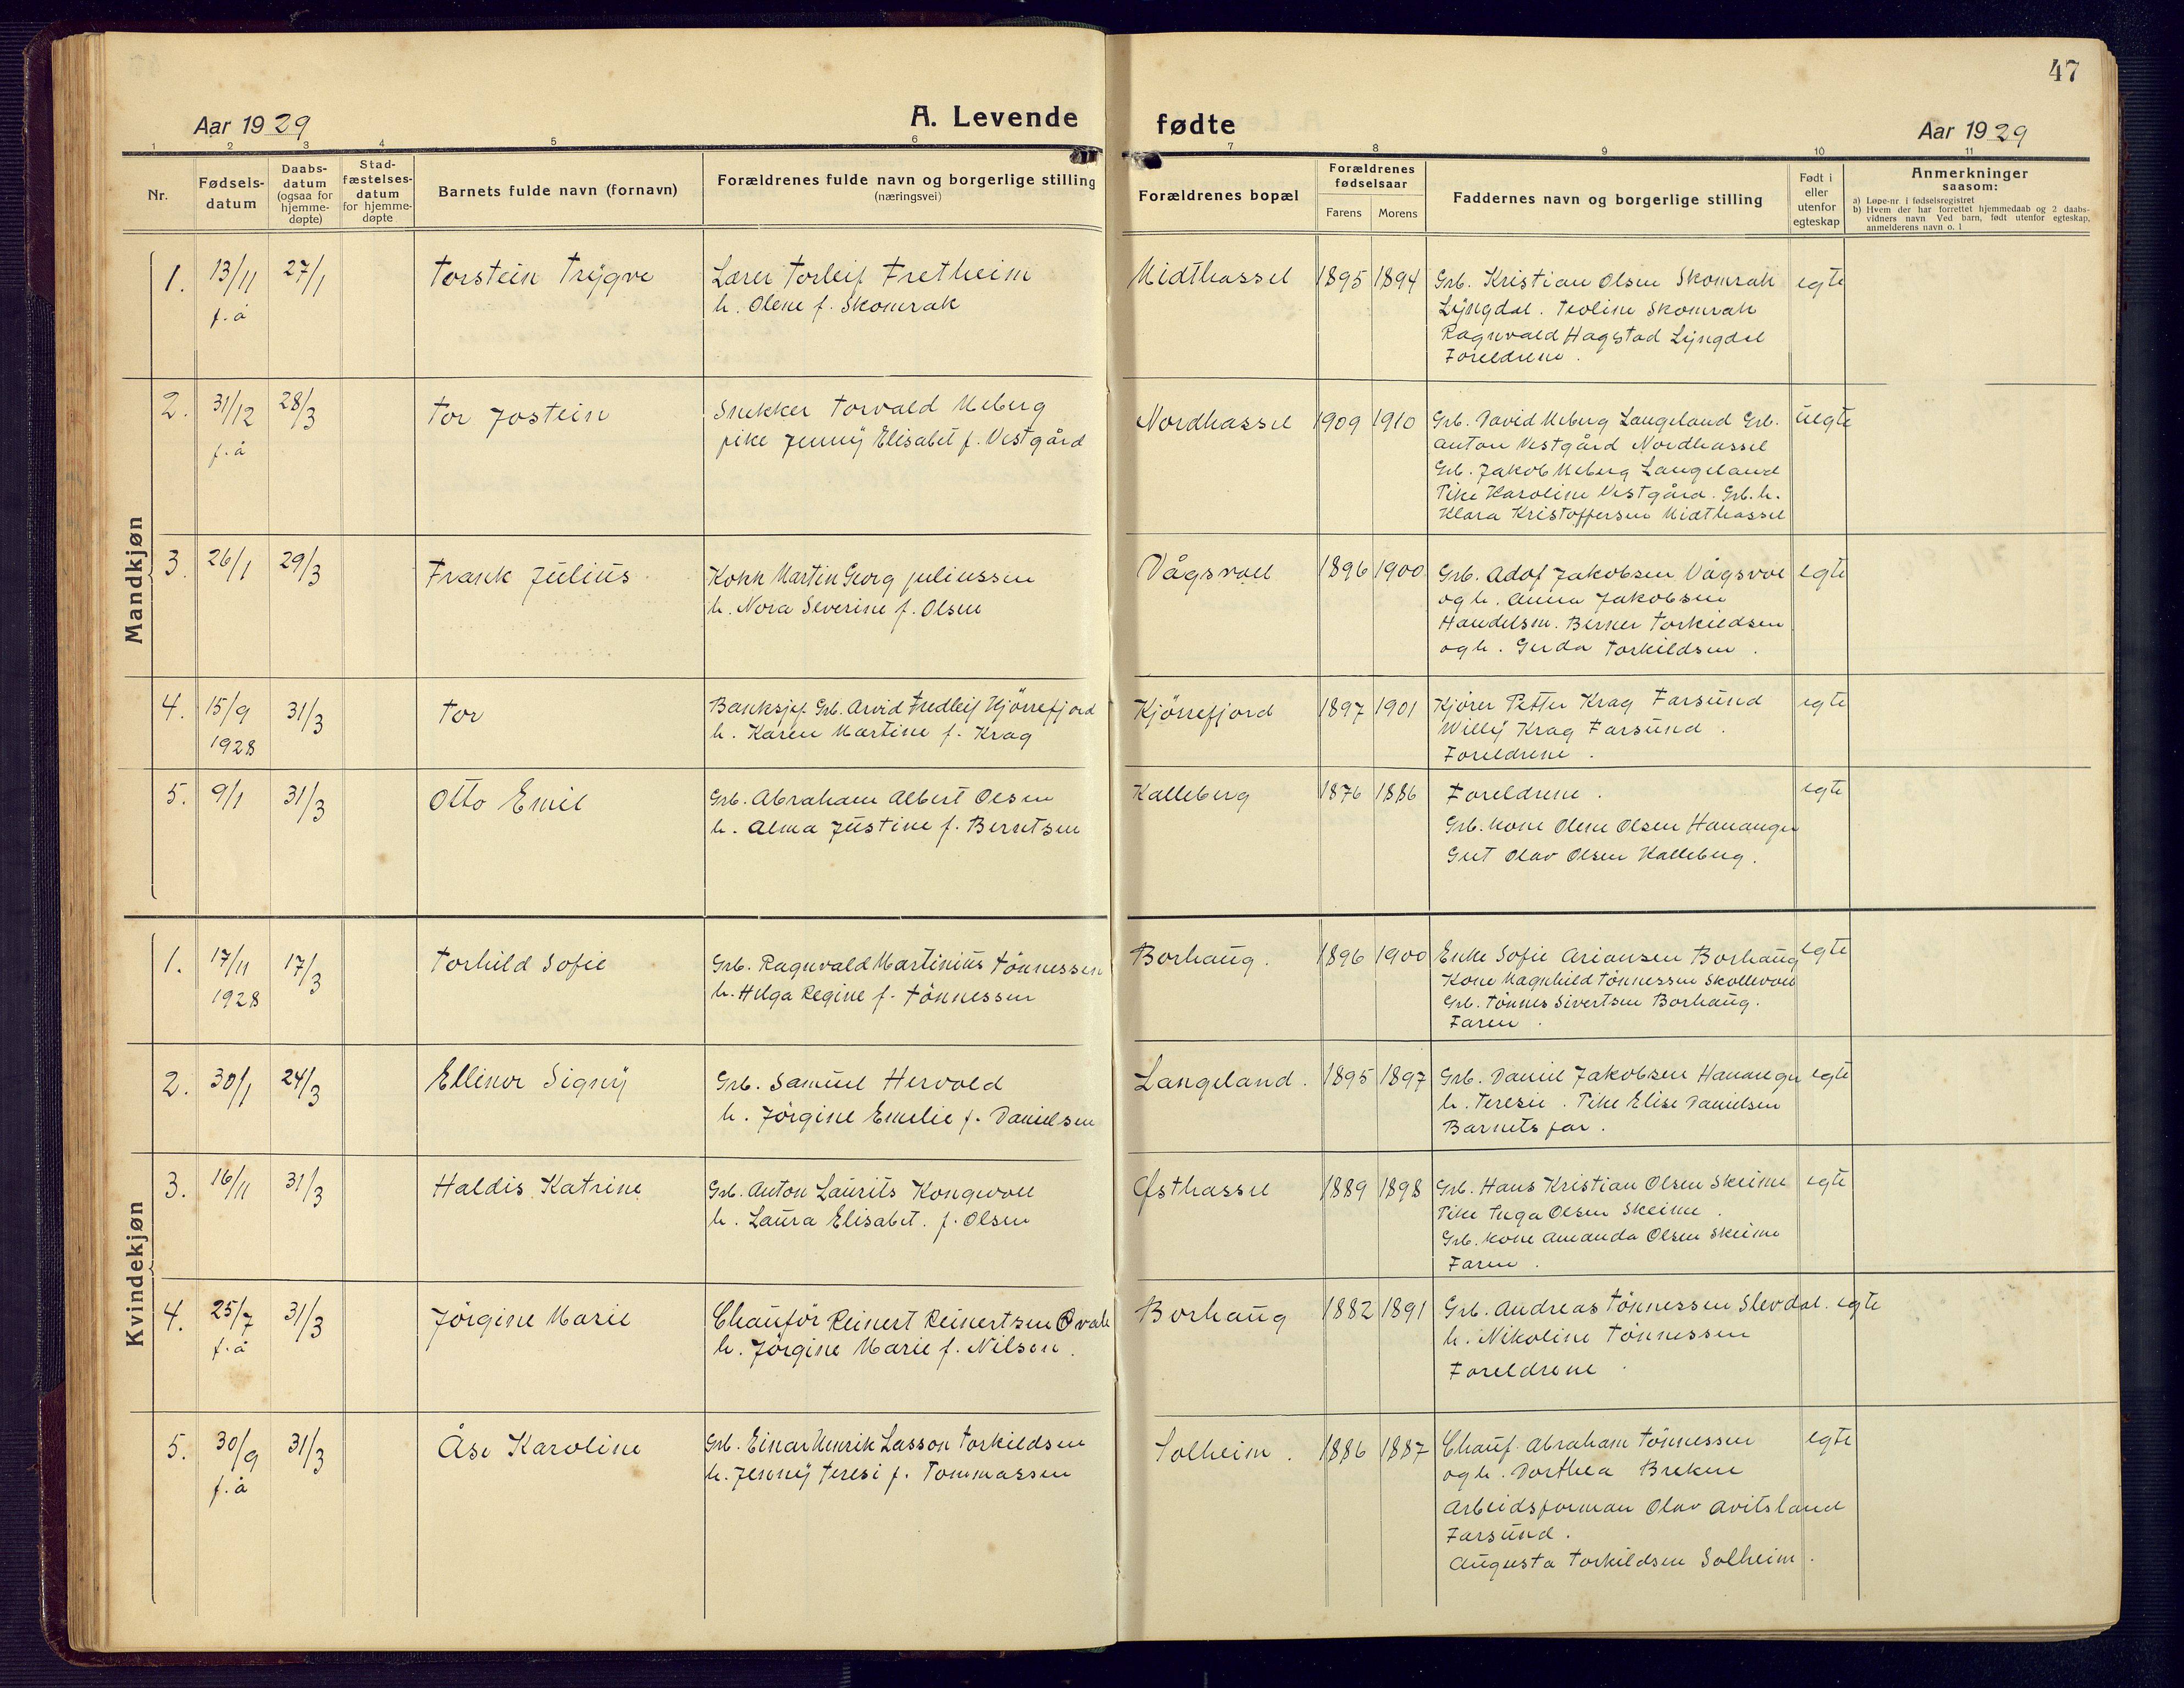 47
Aar 1929
A. Levende
fødte
Aar 1929
1 2 3 4 5 6 7 8 9 10 11
Nr.
Fødsels-
datum
Daabs-
datum
(ogsaa for
hjemme-
døpte)
Stad-
fæstelses-
datum
for hjemme-
døpte
Barnets fulde navn (fornavn)
Forældrenes fulde navn og borgerlige stilling
(næringsvei)
Forældrenes bopæl
Forældrenes
fødselsaar
Farens Morens
Faddernes navn og borgerlige stilling
Født i
eller
utenfor
egteskap
Anmerkninger
saasom:
a) Løpe-nr i fødselsregistret
b) Hvem der har forrettet hjemmedaab og 2 daabs-
vidners navn Ved barn, født utenfor egteskap,
anmelderens navn o. l
Mandkjøn
1. 13/11 27/1 Torstein Trygve Lærer Torleif Fretheim Midthassel 1895 1894 Grb. Kristian Olsen Skomrak egte
f.å h. Olene f. Skomrak Lyngdal. Teoline Skomrak
Ragnvald Hagstad Lyngdal
Foreldrene.
2. 31/12 28/3 Tor Jostein Snekker Torvald Meberg Nordhassel 1909 1910 Grb. David Meberg Langeland Grb. uegte
f.å pike Jenny Elisabet f. Vestgård Anton Vestgård Nordhassel
Grb. Jakob Meberg Langeland
Pike Karoline Vestgård. Grb. h.
Klara Kristoffersen Midthassel
3. 26/1 29/3 Frank Julius Kokk Martin Georg Juliussen Vågsvoll 1896 1900 Grb. Adof Jakobsen Vågsvol egte
h. Nora Severine f. Olsen og h. Anna Jakobsen
Handelsm. Berner Torkildsen
og h. Gerda Torkildsen.
4. 15/9 31/3 Tor Banksjef Grb. Arvid Fredleif Kjörrefjord Kjörrefjord 1897 1901 Kjører Petter Krag Farsund egte
1928 h. Karen Martine f. Krag Willy Krag Farsund.
Foreldrene.
5. 9/1 31/3 Otto Emil Grb. Abraham Albert Olsen Kalleberg 1876 1886 Foreldrene. egte
h. Alma Justine f. Berntsen Grb. kone Olene Olsen Hananger
Gut Olav Olsen Kalleberg.
Kvindekjøn
1. 17/11 17/3 Torhild Sofie Grb. Ragnvald Martinius Tönnessen Borhaug. 1896 1900 Enke Sofie Ariansen Borhaug egte
1928 h. Helga Regine f. Tönnessen Kone Magnhild Tönnessen Skollevoll
Grb. Tönnes Sivertsen Borhaug.
Faren.
2. 30/1 24/3 Ellinor Signy Grb. Samuel Hervold Langeland. 1895 1897 Grb. Daniel Jakobsen egte
h. Jörgine Emelie f. Danielsen h. Teresie. Pike Elise Danielsen
Barnets far.
3. 16/11 31/3 Haldis Katrine Grb. Anton Laurits Kongevoll Østhassel 1889 1898 Grb. Hans Kristian Olsen Skeime egte
h. Laura Elisabet. f. Olsen Pike Inga Olsen Skeime.
Grb. kone Amanda Olsen Skeime
Faren.
4. 25/7 31/3 Jörgine Marie Chauför Reinert Reinertsen Borhaug 1882 1891 Grb. Andreas Tönnessen Slevdal. egte
f.å h. Jörgine Marie f. Nilsen. h. Nikoline Tönnessen
Foreldrene.
5. 30/9 31/3 Åse Karoline Grb. Einar Henrik Lasson Torkildsen Solheim. 1886 1887 Chauf. Abraham Tönnessen egte
f.å h. Jenny Teresi f. Tommassen og h. Dorthea Brekne
Arbeidsforman Olav Avitsland
Farsund.
Augusta Torkildsen Solheim.